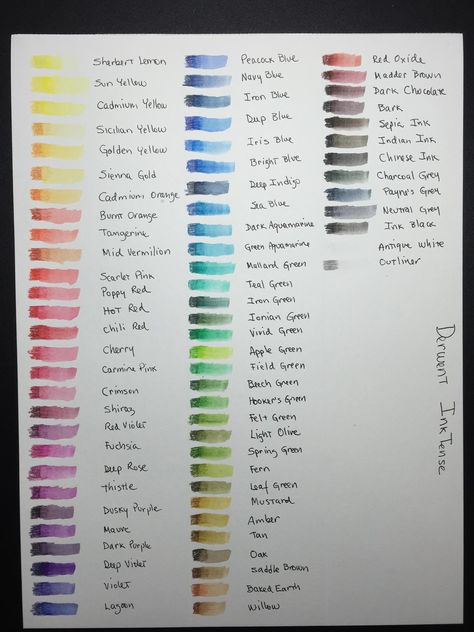 Sherbert Lemon
Sun Yellow
Cadmium Yellow
Sicilian Yellow
Golden Yellow
Sienna Gold
Cadmium Orange
Burnt Orange
Tangerine
Mid Vermilion
Scarlet Pink
Poppy Red
Hot Red
Chili Red
Cherry
Carmine Pink
Crimson
Shiraz
Red Violet
Fuchsia
Deep Rose
Thistle
Dusky Purple
Mauve
Dark Purple
Deep Violet
Violet
Lagoon
Peacock Blue
Navy Blue
Iron Blue
Deep Blue
Iris Blue
Bright Blue
Deep Indigo
Sea Blue
Dark Aquamarine
Green Aquamarine
Mallard Green
Teal Green
Iron Green
Ionian Green
Vivid Green
Apple Green
Field Green
Beech Green
Hooker's Green
Felt Green
Light Olive
Spring Green
Fern
Leaf Green
Mustard
Amber
Tan
Oak
Saddle Brown
Baked Earth
Willow
Red Oxide
Madder Brown
Dark Chocolate
Bark
Sepia Ink
Indian Ink
Chinese Ink
Charcoal Grey
Payne's Grey
Neutral Grey
Ink Black
Antique White
Outliner
Derwent InkTense